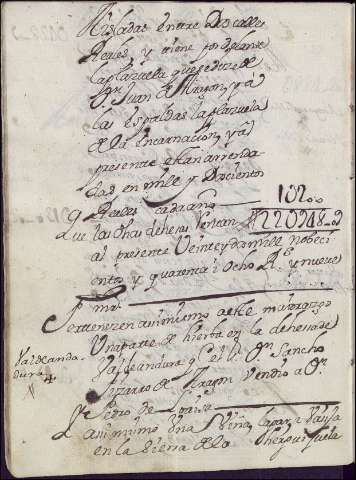 Aisladas entre Dos calles
Reales y tiene por delante
la plazuela que se dize de
Sn Juan de Aragon, y a
las espaldas la plazuela
de la Encarnacion, y a
presente estan arrenda
das en mill y Docientos
Reales cada año 102..
Que las dhas dehesas rentan 220948..9
al presente Veinte y dos mill nobeci
entos y quarenta i ocho Rs y nueve
ms
Pertenezen asimismo a este maiorazgo
Una parte de hierba en la dehesa de
Valdeandura q es la Dn Sancho
Pizarro de Aragon vendio a Dn
Pedro de Loaisa
asi mismo Una Viña, lagar, i
en la tierra de la
Valdeanda
dura